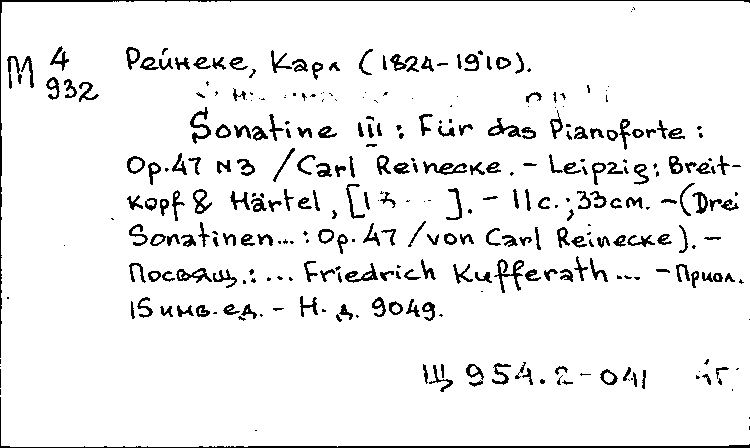 М 4
932
Рейнеке, Карл (1824-1910).
Sonatine III : Für das Pianoforte :
Op.47 N3 / Carl Reinecke. - Leipzig: Breit-
kopf & Härtel, [1 ]. - 11 с.; 33 см. - (Drei
Sonatinen... : Op.47 / von Carl Reinecke). -
Посвящ.: ... Friedrich Kufferath ... - Прил.
15 инв. ед. - Н. д. 9049.
Щ 954.2-041